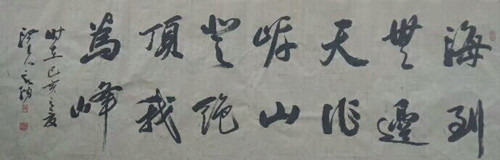 海到
無邊
天作
岸山
登絕
頂我
為峰
己亥之夏